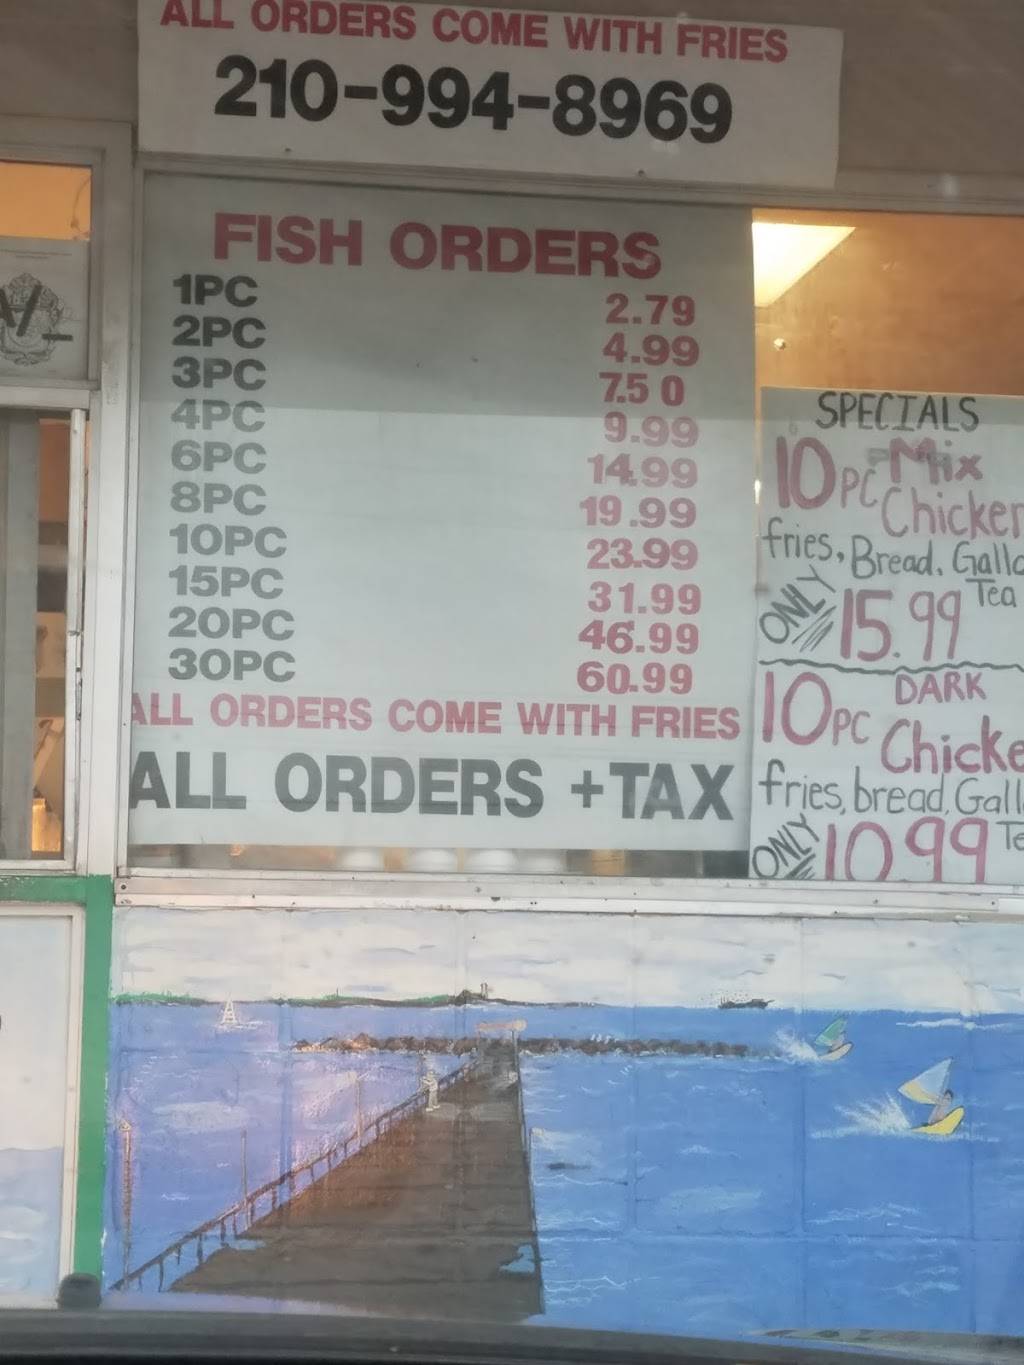 ALL ORDERS COME WITH FRIES
210-994-8969
FISH ORDERS
1PC 2.79
2PC 4.99
3PC 7.50
4PC 9.99
6PC 14.99
8PC 19.99
10PC 23.99
15PC 31.99
20PC 46.99
30PC 60.99
ALL ORDERS COME WITH FRIES
ALL ORDERS +TAX
SPECIALS
10PC Mix
Chicken
fries, Bread, Gallo
Tea
ONLY 15.99
10PC DARK
Chicke
fries, bread, Gall
Te
ONLY 10.99